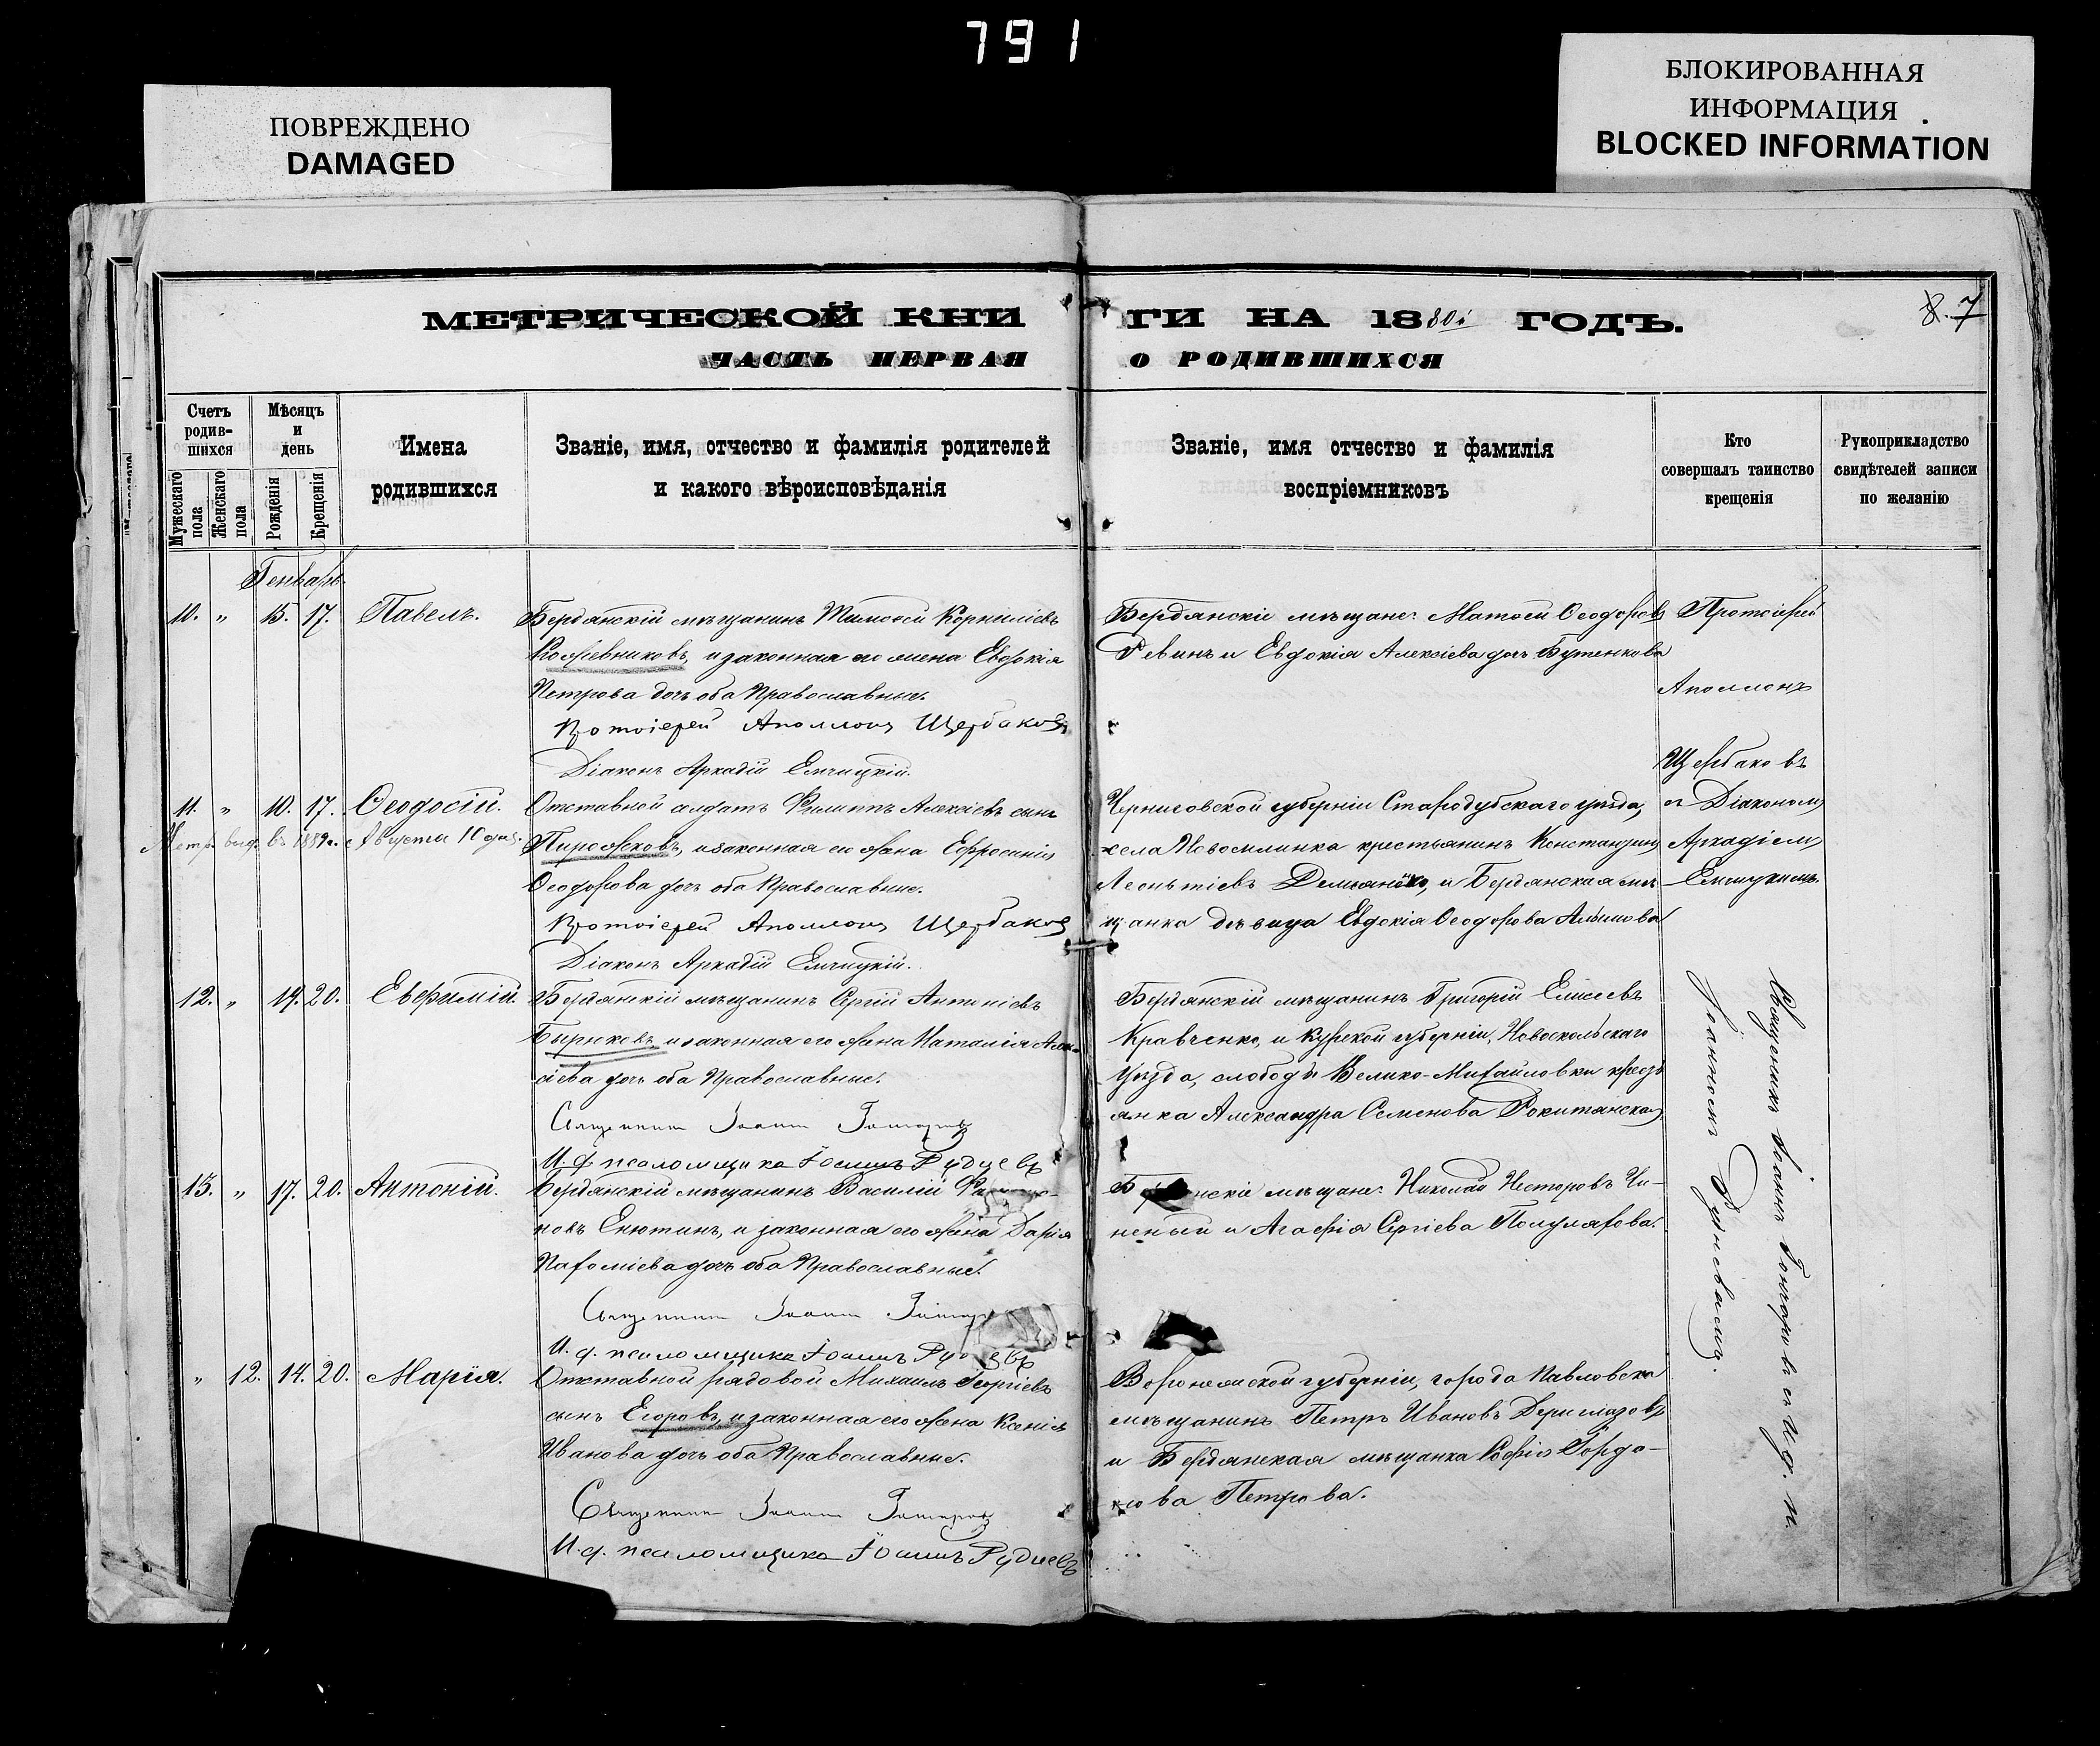 791
ПОВРЕЖДЕНО
DAMAGED
БЛОКИРОВАННАЯ
ИНФОРМАЦИЯ
BLOCKED INFORMATION
МЕТРИЧЕСКОЙ КНИ ГИ НА 1880й ГОДЪ.
8. 7
ЧАСТЬ ПЕРВАЯ О РОДИВШИХСЯ
Счетъ родив-шихся
Мужескаго пола
Женскаго пола
Мѣсяцъ и день
Рожденія
Крещенія
Имена родившихся
Званіе, имя, отчество и фамилія родителей
и какого вѣроисповѣданія
Званіе, имя отчество и фамилія
воспріемниковъ
Кто
совершалъ таинство
крещенія
Рукоприкладство
свидѣтелей записи
по желанію
Генварь
10. „ 15. 17. Павелъ.
Бердянскій мѣщанинъ Тимоѳей Корниліевъ
Кожевниковъ, и законная его жена Евдокія
Петрова дочь оба Православные.
Протоіерей Аполлонъ Щербаковъ
Діаконъ Аркадій
Бердянскіе мѣщане: Матѳей Ѳеодоровъ
Ревинъ и Евдокія Алексіева дочь Бутенкова
Протоіерей
Аполлонъ
Щербаковъ
съ Діакономъ
Аркадіемъ
11. „ 10. 17. Ѳеодосій.
Метр. выд. въ 1889 г. Августа 10 дня.
Отставной солдатъ Филиппъ Алексіевъ сынъ
Пирожковъ, и законная его жена Евфросинія
Ѳеодорова дочь оба Православные.
Протоіерей Аполлонъ Щербаковъ
Діаконъ Аркадій
Черниговской губерніи Стародубскаго уѣзда,
села Новомлинка крестьянинъ Константинъ
Леонтіевъ и Бердянская мѣ-
щанка дѣвица Евдокія Ѳеодорова Алымова
12. „ 19. 20. Евфимій.
Бердянскій мѣщанинъ Сергій Антоніевъ
Бырюковъ, и законная его жена Наталія Алек-
сіева дочь оба Православные.
Священникъ Іоаннъ
И. д. псаломщика Іоаннъ Рудневъ
Бердянскій мѣщанинъ Григорій Елисеевъ
Кравченко, и Курской губерніи, Новоскольскаго
уѣзда, слободы Велико-Михайловки крестъ
янка Александра Семенова Рокитянская
Священникъ Іоаннъ съ И. д. п.
Іоанномъ Рудневымъ
13. „ 17. 20. Антоній.
Бердянскій мѣщанинъ Василій
новъ Енютинъ, и законная его жена Дарія
Пахоміева дочь оба Православные.
Священникъ Іоаннъ
И. д. псаломщика Іоаннъ
мѣщане: Николай Несторовъ Чи-
неный и Агафія Сергіева Полуляхова.
„ 12. 14. 20. Марія.
Отставной рядовой Михаилъ Георгіевъ
сынъ Егоровъ, и законная его жена Ксенія
Иванова дочь оба Православные.
Священникъ Іоаннъ
И. д. псаломщика Іоаннъ Рудневъ
Воронежской губерніи, города Павловска
мѣщанинъ Петръ Ивановъ Дериглазовъ
и Бердянская мѣщанка Софія
Петрова.